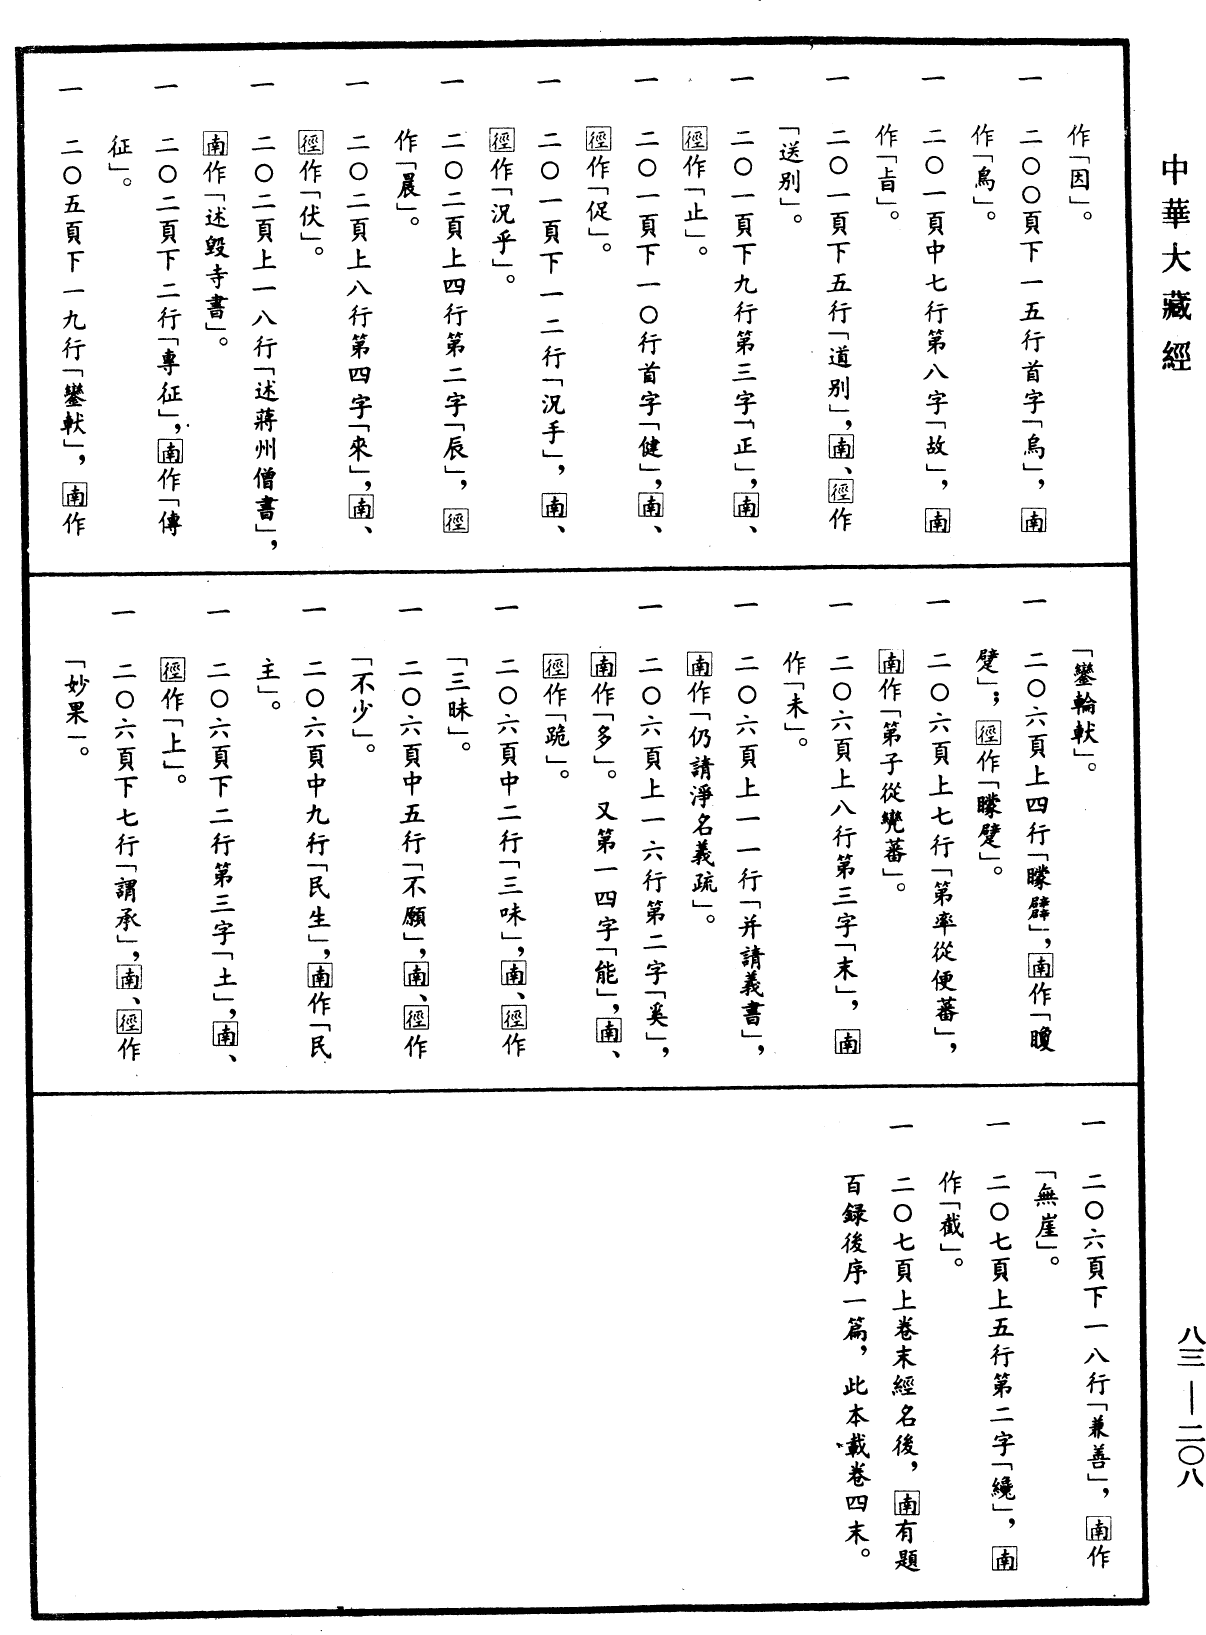 中華大藏經
八三—二〇八
作「因」。
一　二〇〇頁下一五行首字「烏」，南
作「鳥」。
一　二〇一頁中七行第八字「故」，南
作「旨」。
一　二〇一頁下五行「道別」，南、徑作
「送別」。
一　二〇一頁下九行第三字「正」，南、
徑作「止」。
一　二〇一頁下一〇行首字「健」，南、
徑作「促」。
一　二〇一頁下一二行「況手」，南、
徑作「況乎」。
一　二〇二頁上四行第二字「辰」，徑
作「晨」。
一　二〇二頁上八行第四字「來」，南、
徑作「伏」。
一　二〇二頁上一八行「述蔣州僧書」，
南作「述毀寺書」。
一　二〇二頁下二行「專征」，南作「傳
征」。
一　二〇五頁下一九行「鑾軑」，南作
「鑾輪軑」。
一　二〇六頁上四行「矇躃」，南作「瞍
躄」；徑作「矇躄」。
一　二〇六頁上七行「第率從便蕃」，
南作「第子從㝹蕃」。
一　二〇六頁上八行第三字「末」，南
作「未」。
一　二〇六頁上一一行「并請義書」，
南作「仍請淨名義疏」。
一　二〇六頁上一六行第二字「奚」，
南作「多」。又第一四字「能」，南、
徑作「跪」。
一　二〇六頁中二行「三味」，南、徑作
「三昧」。
一　二〇六頁中五行「不願」，南、徑作
「不少」。
一　二〇六頁中九行「民生」，南作「民
主」。
一　二〇六頁下二行第三字「土」，南、
徑作「上」。
一　二〇六頁下七行「謂承」，南、徑作
「妙果」。
一　二〇六頁下一八行「兼善」，南作
「無崖」。
一　二〇七頁上五行第二字「纔」，南
作「截」。
一　二〇七頁上卷末經名後，南有題
百録後序一篇，此本載卷四末。